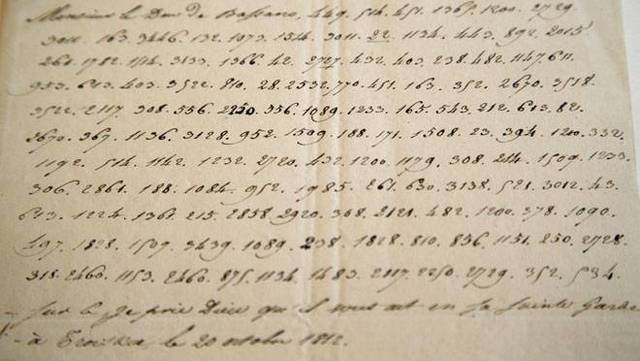 Monsieur le Duc de Bassano, 449. 514. 451. 1365. 1200. 2729.
3011. 163. 3446. 132. 1073. 1314. 3011. 22. 1134. 443. 892. 2015
261. 1782. 3133. 1366. 42. 2727. 432. 403. 238. 482. 1147. 611.
953. 643. 403. 3522. 810. 28. 2532. 770. 451. 163. 352. 2670. 3518.
3522. 2117. 308. 556. 2250. 356. 1089. 1233. 165. 543. 212. 613. 82.
3670. 367. 1136. 3128. 952. 1509. 188. 171. 1508. 23. 394. 1200. 332.
1192. 514. 1142. 1232. 2720. 432. 1200. 1179. 308. 214. 1509. 1233.
306. 2861. 188. 1084. 952. 1985. 261. 630. 3138. 521. 3012. 43.
643. 1224. 1361. 215. 2858. 2920. 308. 2121. 482. 1200. 378. 1090.
497. 1828. 1507. 3439. 1089. 238. 1828. 810. 856. 1151. 250. 2728.
318. 2460. 1153. 2460. 875. 1134. 1483. 2117. 2250. 2729. 352. 534.
Sur ce Je prie Dieu qu'il vous ait en sa Sainte Garde
- à Troiska, le 20 octobre 1812.